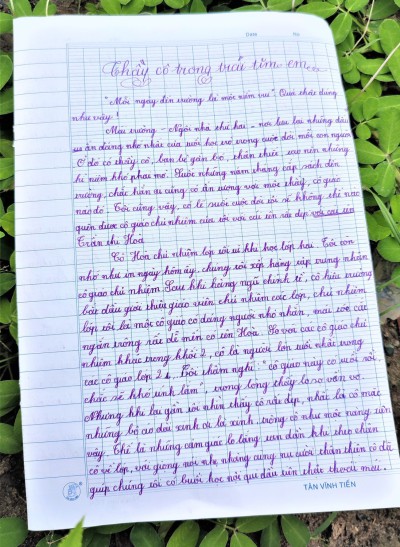 Date No
Thầy cô trong trái tim em
"Mỗi ngày đến trường là một niềm vui". Quả thật đúng
như vậy!
Mái trường - Ngôi nhà thứ hai - nơi lưu lại những dấu
ấn đáng nhớ nhất của tuổi học trò trong cuộc đời mỗi con người.
Ở đó có thầy cô, bạn bè gắn bó, thân thiết tạo nên những
kỉ niệm khó phai mờ. Suốt những năm tháng cắp sách đến
trường, chắc hẳn ai cũng có ấn tượng với một thầy, cô giáo
nào đó. Tôi cũng vậy, có lẽ suốt cuộc đời tôi sẽ không thể nào
quên được cô giáo chủ nhiệm của tôi với cái tên rất đẹp
Trần Thị Hoa.
Cô Hoa chủ nhiệm lớp tôi từ khi học lớp hai. Tôi còn
nhớ như in ngày hôm ấy, chúng tôi xếp hàng tập trung nhận
cô giáo chủ nhiệm. Sau khi hàng ngũ chỉnh tề, cô hiệu trưởng
bắt đầu giới thiệu giáo viên chủ nhiệm các lớp, chủ nhiệm
lớp tôi là một cô giáo có dáng người nhỏ nhắn, mái tóc
ngắn trông rất dễ mến có tên Hoa. So với các cô giáo chủ
nhiệm khác trong khối 2, cô là người lớn tuổi nhất trong
các cô giáo lớp 2. Tôi thầm nghĩ: "cô giáo này có tuổi rồi,
chắc sẽ khó tính lắm", trong lòng thấy lo sợ vẩn vơ.
Nhưng khi lại gần tôi nhìn thấy cô rất đẹp, nhất là cô mặc
những bộ áo dài xinh ơi là xinh, trông cô như một nàng tiên
vậy. Thế là những cảm giác lo lắng tan dần khi theo chân
cô về lớp, với giọng nói nhẹ nhàng cùng nụ cười thân thiện cô đã
giúp chúng tôi có buổi học nội qui đầu tiên thật
TÂN VĨNH TIẾN